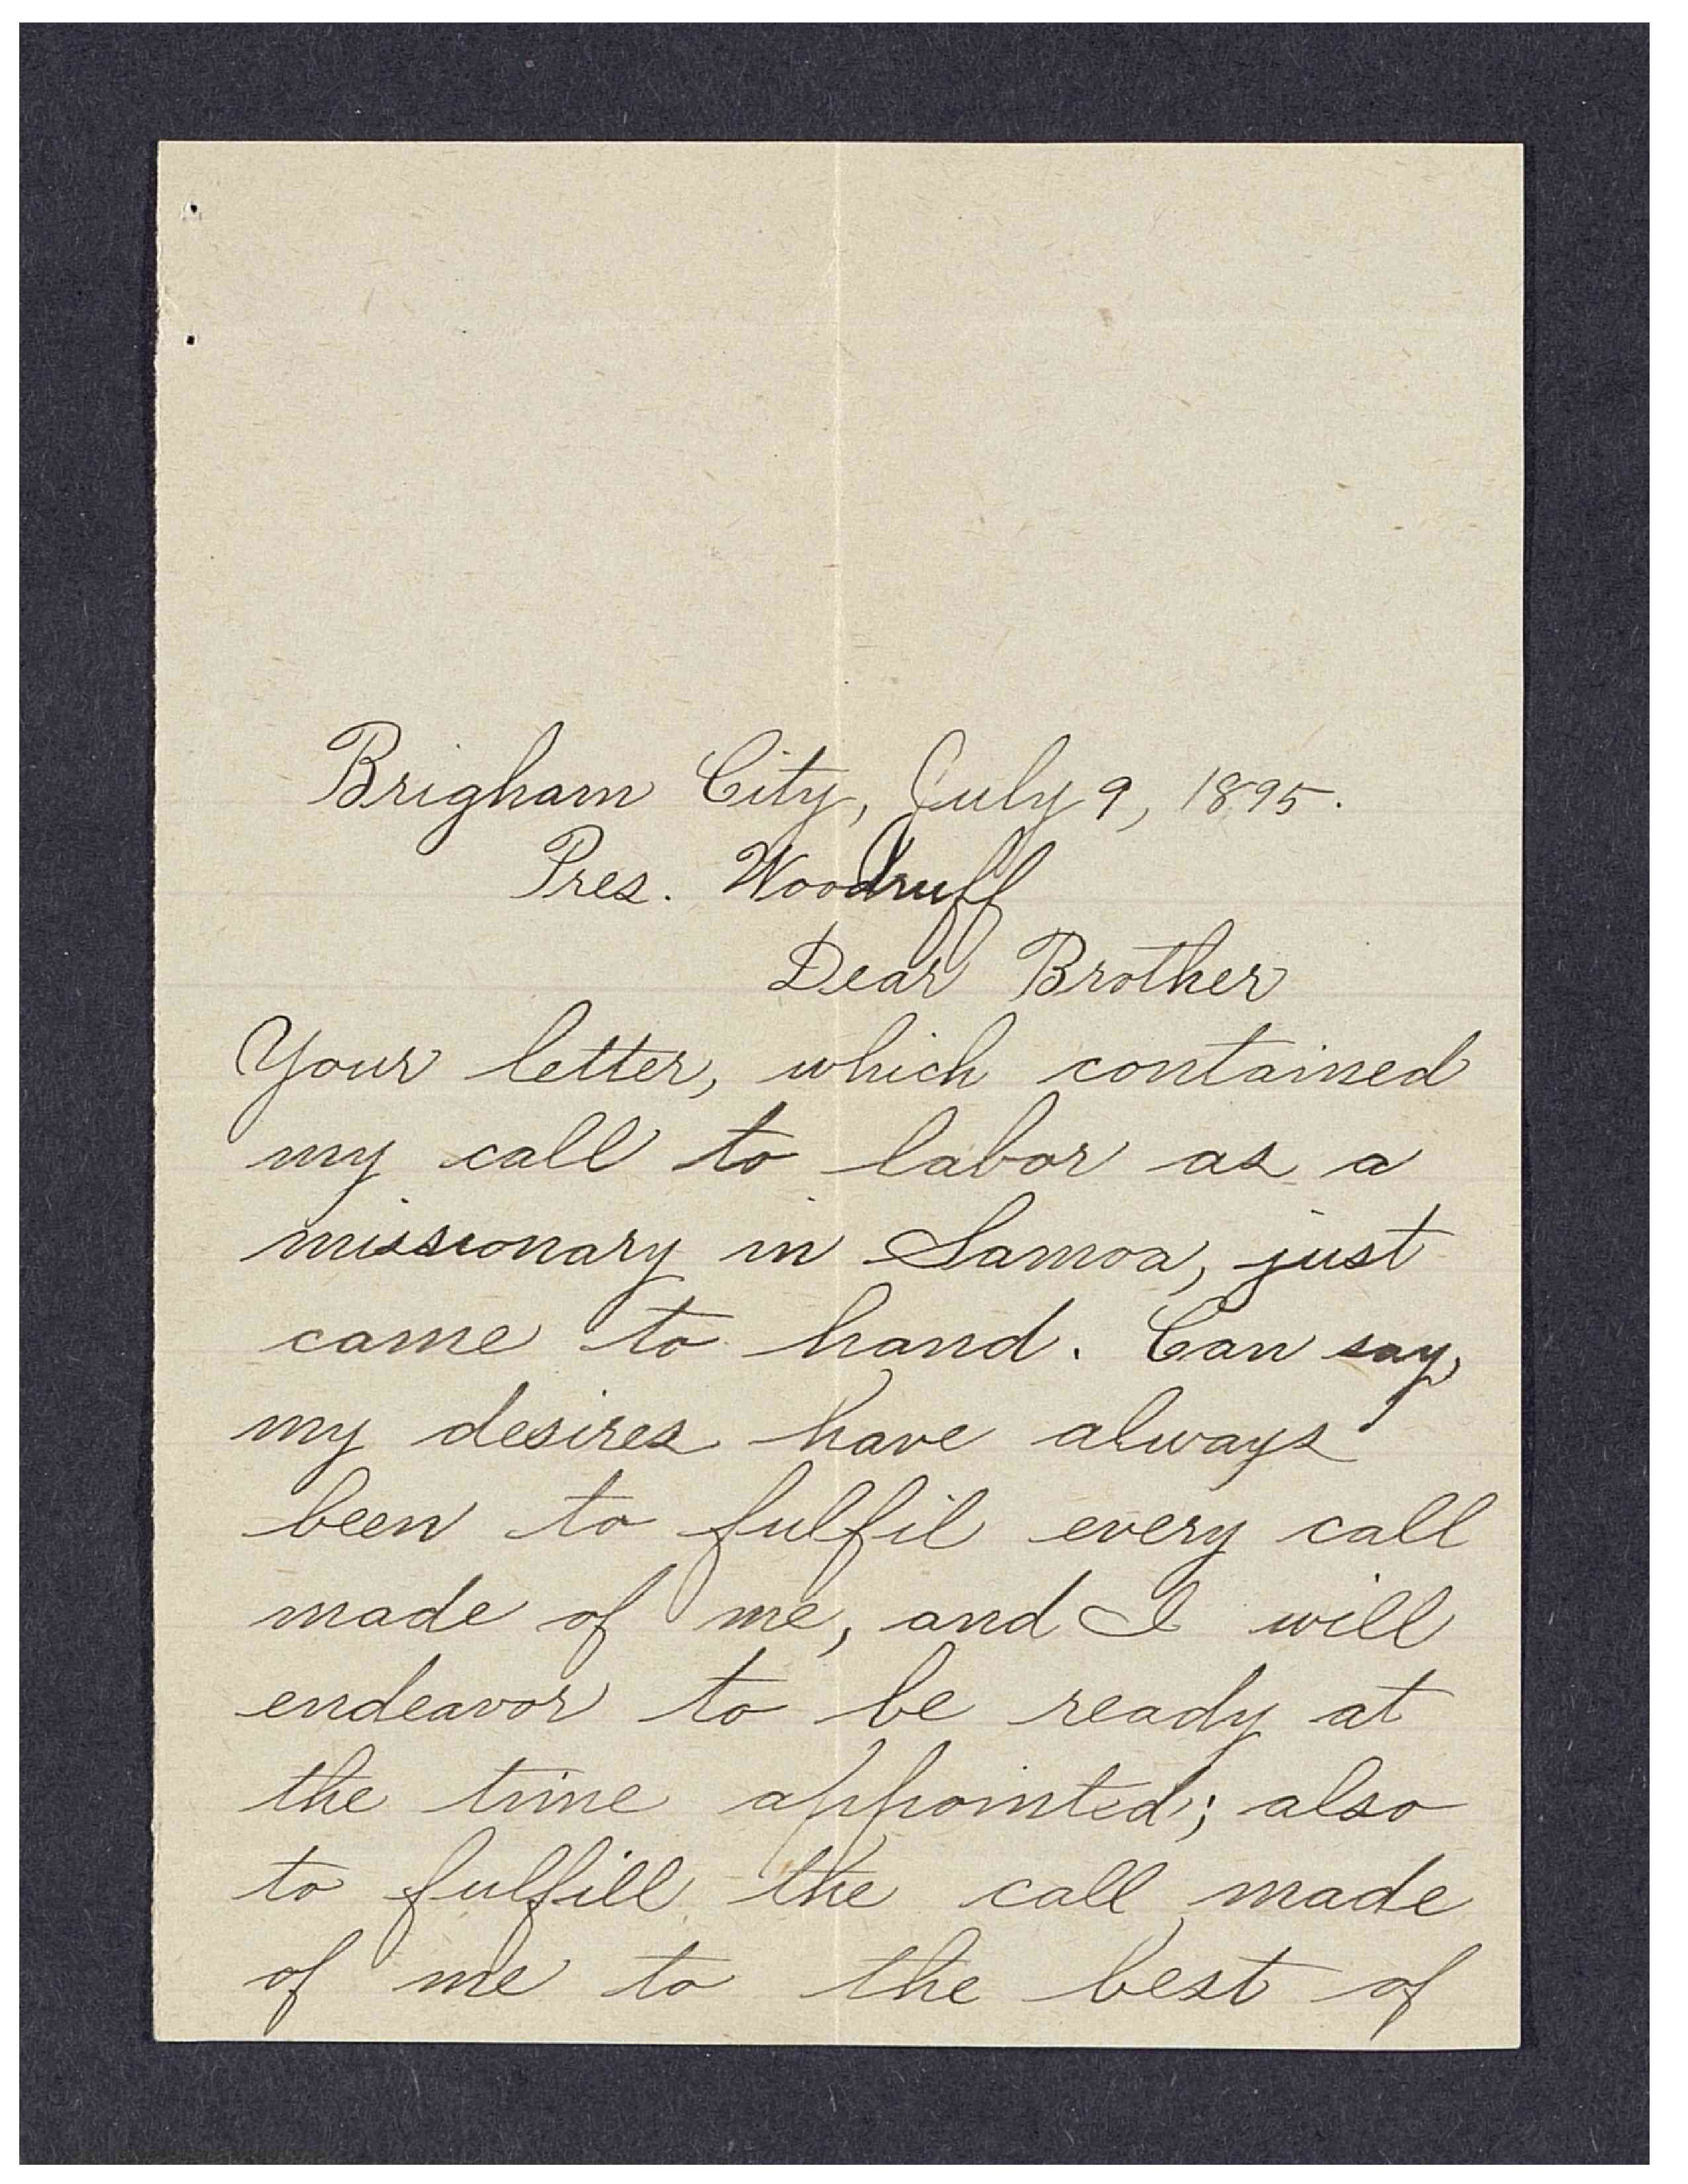 Brigham City, July 9, 1895.
Pres. Woodruff
Dear Brother
Your letter, which contained
my call to labor as a
missionary in Samoa, just
came to hand. Can say,
my desires have always
been to fulfil every call
made of me, and I will
endeavor to be ready at
the time appointed; also
to fulfill the call made
of me to the best of